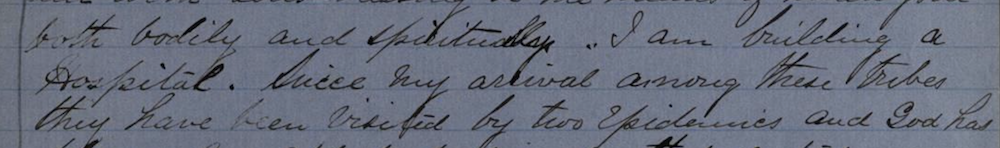 both bodily and spiritually. I am building a
Hospital. Since my arrival among these tribes
they have been visited by two Epidemics and God has